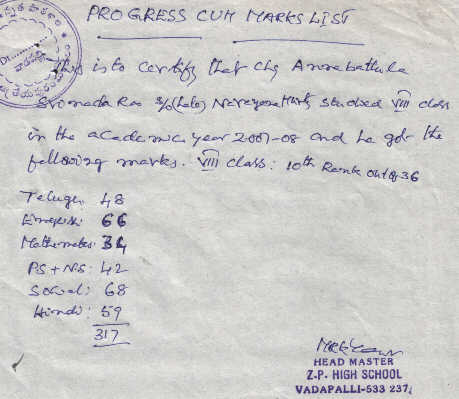 PROGRESS CUM MARKS LIST
This is to certify that Chy Annabathula
Rao S/o (late) Narayana Murty studied VIII class
in the academic year 2007-08 and he got the
following marks. VIII class: 10th Rank out of 36
Telugu: 48
English: 66
Mathematics: 34
PS + NS: 42
Social: 68
Hindi: 59
317
HEAD MASTER
Z.P. HIGH SCHOOL
VADAPALLI-533 237